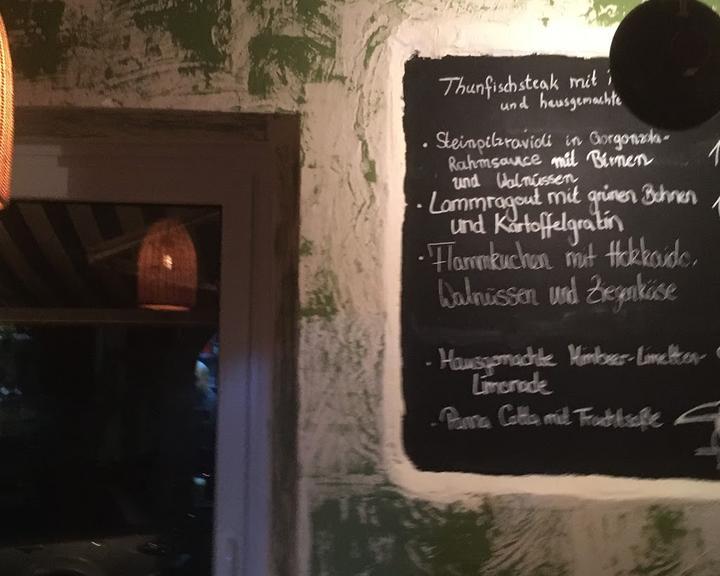 Thunfischsteak mit
und hausgemachte
• Steinpilzravioli in Gorgonzola-
Rahmsauce mit Birnen
und Walnüssen
• Lammragout mit grünen Bohnen
und Kartoffelgratin
• Flammkuchen mit Hokkaido,
Walnüssen und Ziegenkäse
• Hausgemachte Himbeer-Limetten-
Limonade
• Panna Cotta mit Fruchtsoße